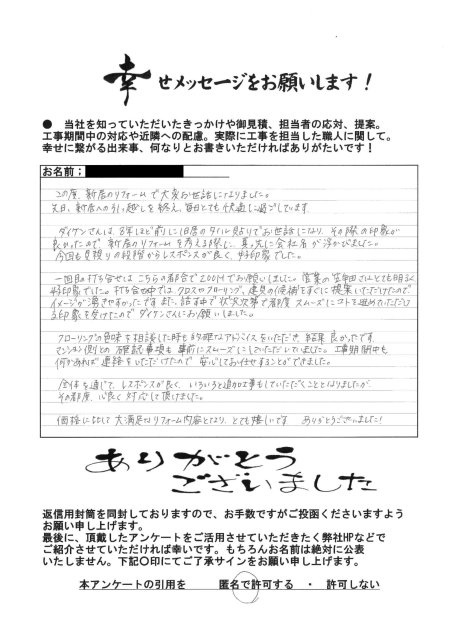 幸せメッセージをお願いします！
● 当社を知っていただいたきっかけや御見積、担当者の応対、提案。
工事期間中の対応や近隣への配慮。実際に工事を担当した職人に関して。
幸せに繋がる出来事、何なりとお書きいただければありがたいです！
お名前：
この度、新居のリフォームで大変お世話になりました。
先日、新居への引っ越しを終え、毎日とても快適に過ごしています。
ダイケンさんは、8年ほど前に旧居のタイル貼りでお世話になり、その際の印象が
良かったので 新居のリフォームを考える際に、真っ先に会社名が浮かびました。
今回も見積りの段階からレスポンスが良く、好印象でした。
一回目の打ち合せは こちらの都合でZOOMでお願いしました。営業の生田さんとても明るく
好印象でした。打ち合せ中では クロスやフローリング、建具の候補をすぐに提案いただけたので
イメージが湧きやすかったです。また、話す中で 状況次第で都度 スムーズにコトを進めていただける
印象を受けたので ダイケンさんにお願いしました。
フローリングの色味を相談した時も的確なアドバイスをいただき、結果 良かったです。
マンション側との 確認事項も 事前にスムーズにしていただいていました。工事期間中も
何かあれば 連絡をいただけたので 安心してお任せすることができました。
全体を通じて、レスポンスが良く、いろいろと追加工事もしていただくこととなりましたが
その都度、心良く 対応して頂けました。
価格に対して 大満足なリフォーム内容となり、とても嬉しいです ありがとうございました！
ありがとう
ございました
返信用封筒を同封しておりますので、お手数ですがご投函くださいますよう
お願い申し上げます。
最後に、頂戴したアンケートをご活用させていただきたく弊社HPなどで
ご紹介させていただければ幸いです。もちろんお名前は絶対に公表
いたしません。下記〇印にてご了承サインをお願い申し上げます。
本アンケートの引用を 匿名で許可する ・ 許可しない